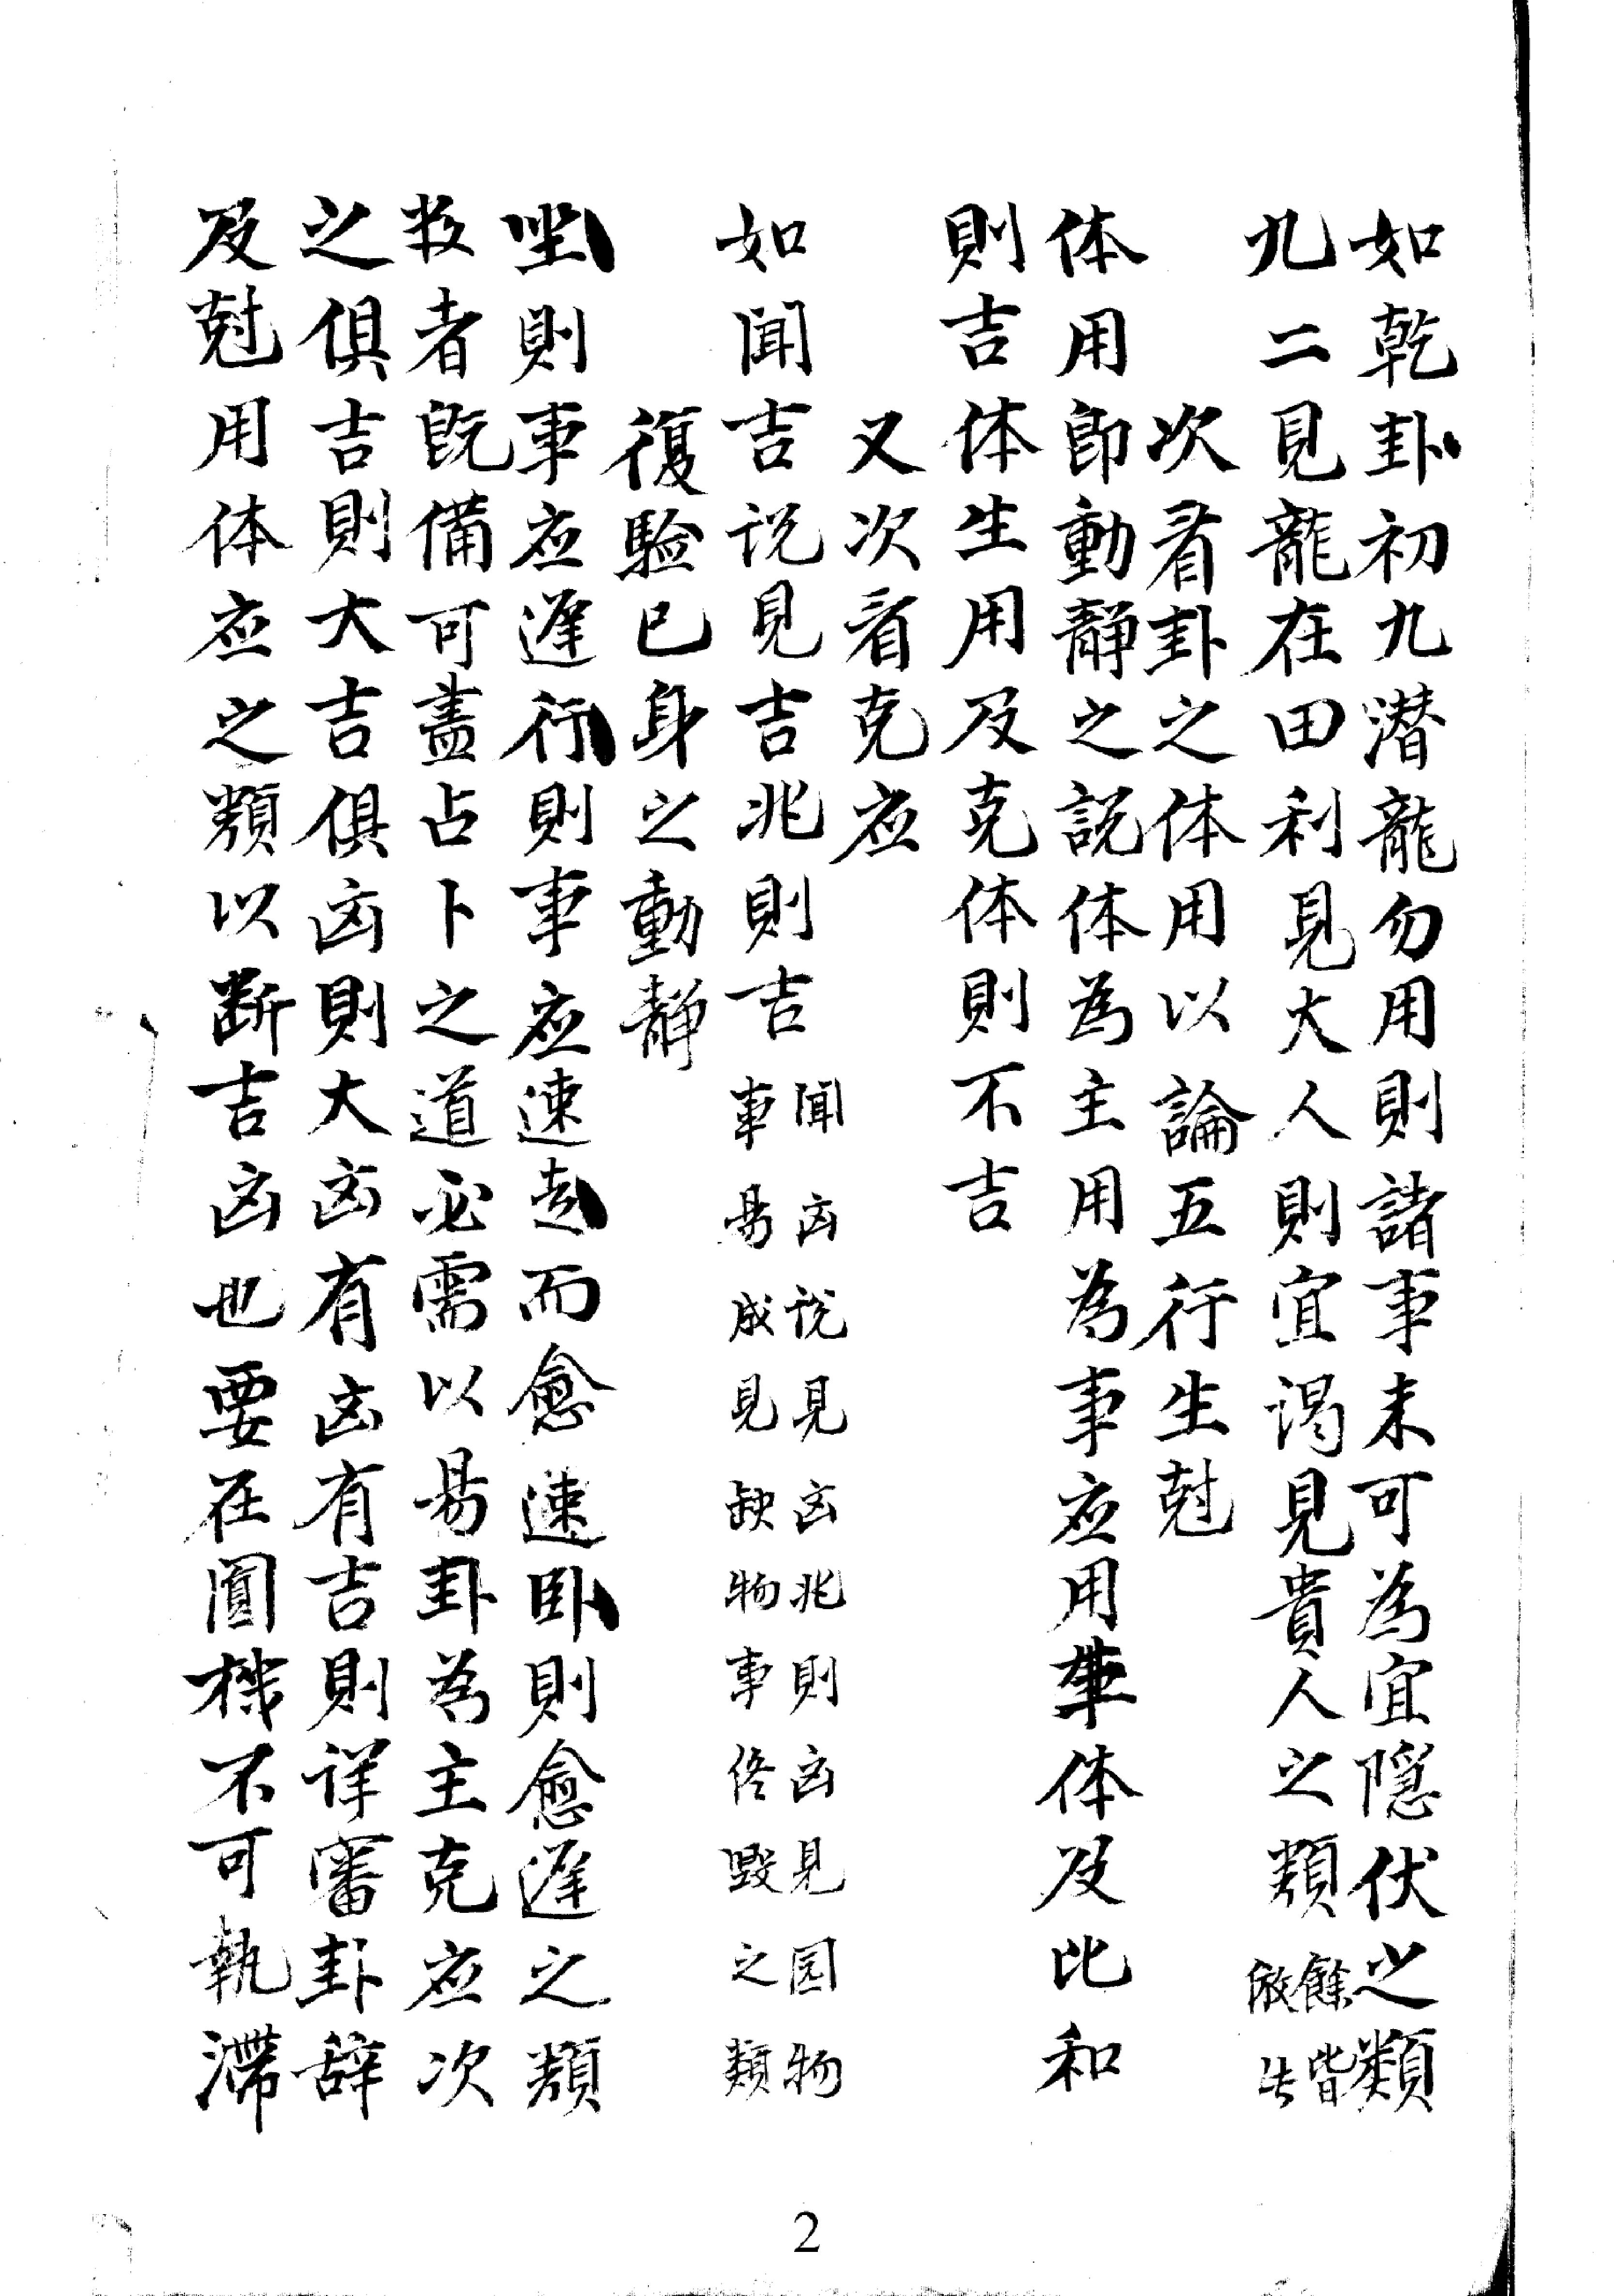 如乾卦初九潜龍勿用則諸事未可為宜隠伏之類
九二見龍在田利見大人則宜謁見貴人之類
餘皆
倣此
次看卦之体用以論五行生尅
体用即動靜之説体為主用為事应用事体及比和
則吉体生用及克体則不吉
又次看克应
如聞吉说見吉兆則吉
聞凶说見凶兆則凶見园物
事易成見缺物事终毁之類
復驗已身之動靜
坐則事应遲行則事应速走而愈速卧則愈遲之類
数者既備可盡占卜之道必需以易卦為主克应次
之俱吉則大吉俱凶則大凶有凶有吉則详審卦辞
及尅用体应之類以断吉凶也要在圓機不可執滯
2